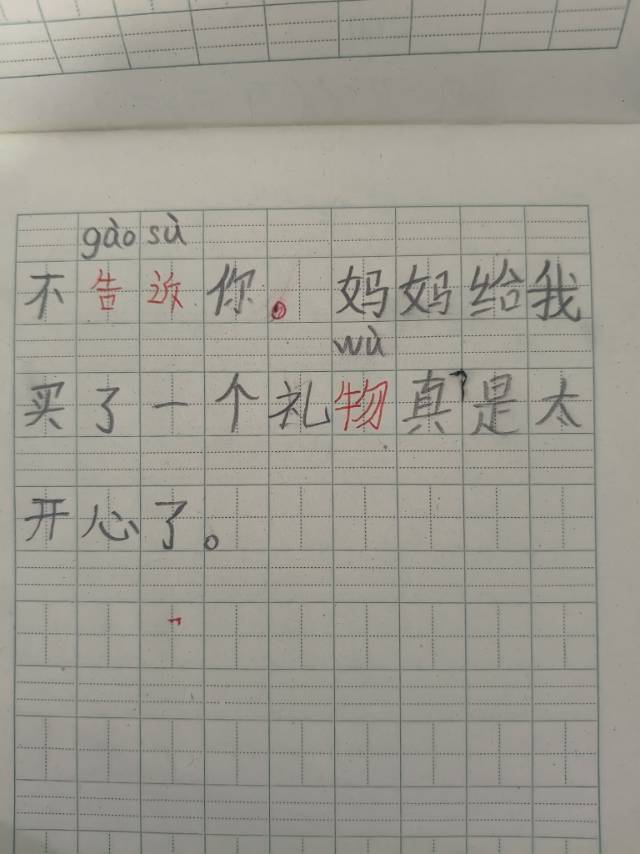 gào sù
不告诉你。妈妈给我
wù
买了一个礼物真,是太
开心了。